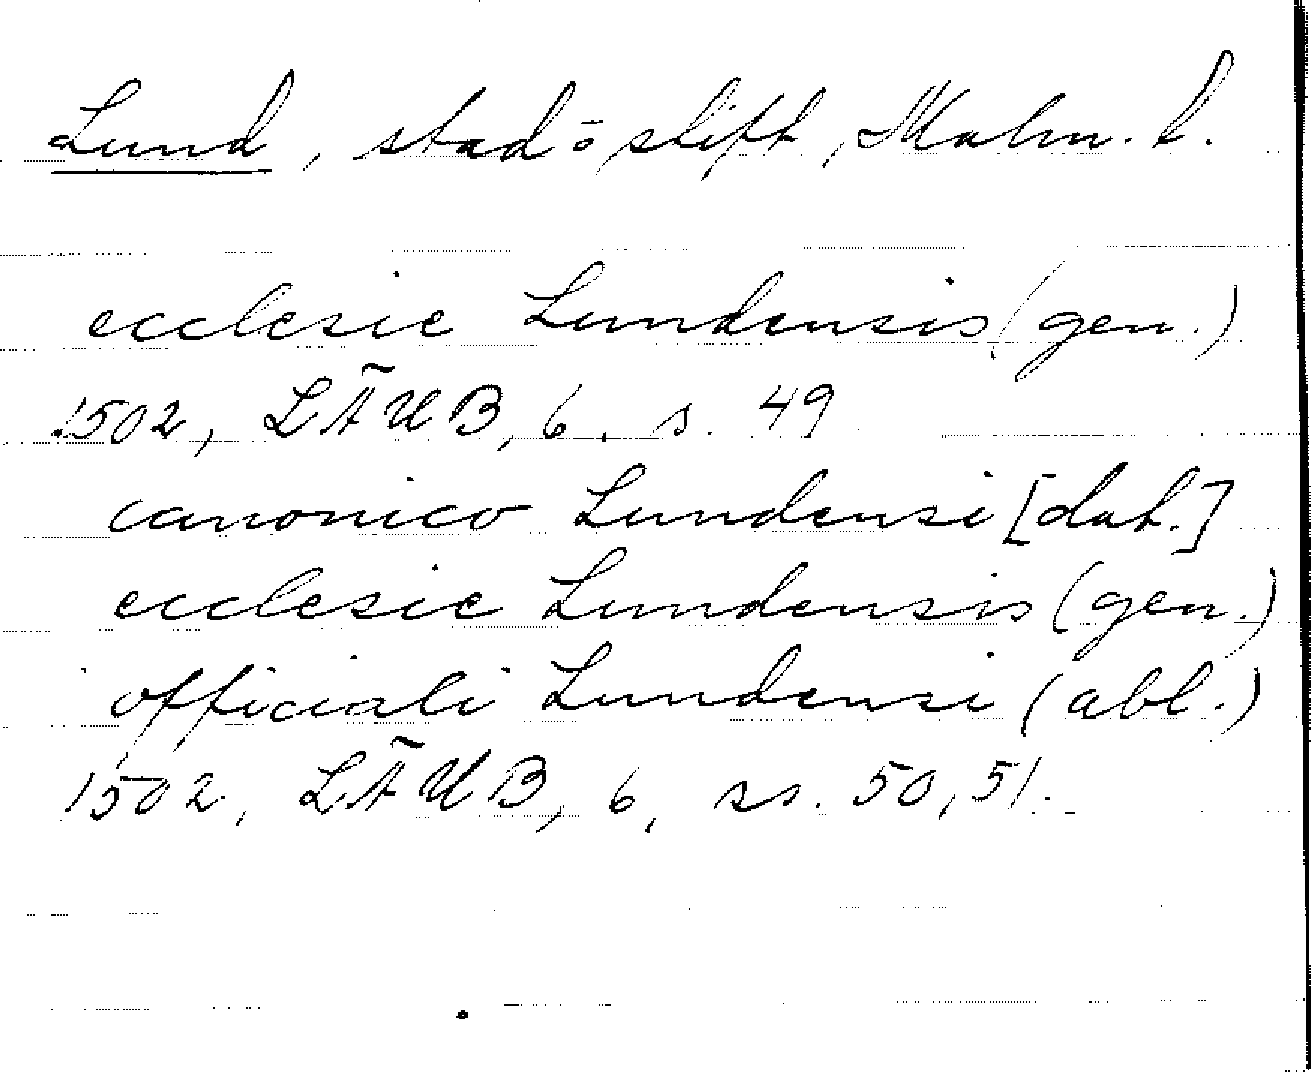 Lund, stad o stift, Malm. l.
ecclesie Lundensis (gen.)
1502, LÄUB, 6, s. 49
canonico Lundensi [dat.]
ecclesie Lundensis (gen.)
officiali Lundensi (abl.)
1502, LÄUB, 6, ss. 50, 51.